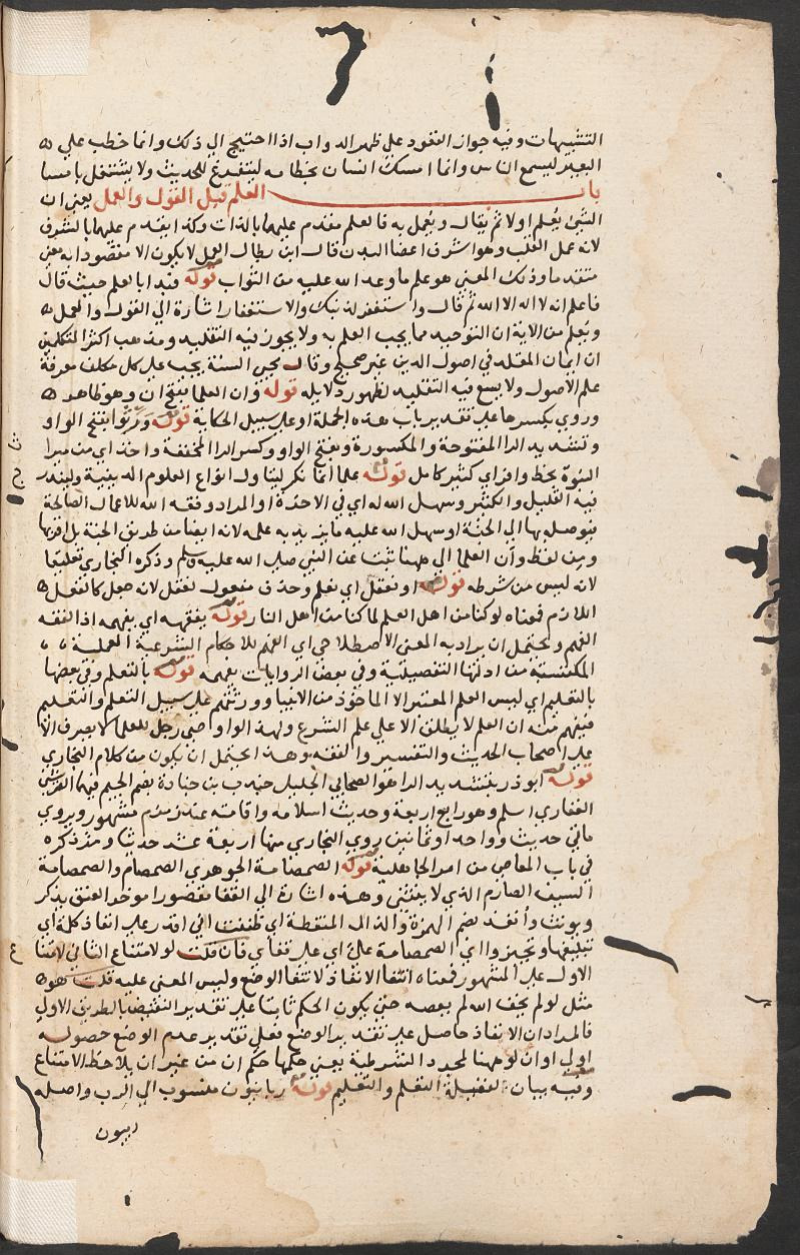 التشبيهات وفيه جواز القعود علي ظهر الدواب اذا احتيج الي ذلك وانما خطب علي
البعير ليسمع الناس وانما امسك انسان بخطامه ليتفرغ للحديث ولا يشتغل بامسا
باب العلم قبل القول والعمل يعني ان
الشئ يعلم اولا ثم يقال ويعمل به فالعلم مقدم عليهما بالذات وكذا يقدم عليهما بالشرف
لانه عمل القلب وهو اشرف اعضا البدن قال ابن بطال العمل لا يكون الا مقصودا به معني
متقدما وذلك المعني هو علم ما وعد الله عليه من الثواب قوله فبدا بالعلم حيث قال
فاعلم انه لا اله الا الله ثم قال واستغفر لذنبك والاستغفار اشارة الي القول والعمل
ويعلم من الاية ان التوحيد مما يجب العلم به ولا يجوز فيه التقليد ومذهب اكثر المتكلمين
ان ايمان المقلد في اصول الدين غير صحيح وقال محيي السنة يجب علي كل مكلف معرفة
علم الاصول ولا يسع فيه التقليد لظهور دلايله قوله وان العلما بفتح ان وهو ظاهر
وروي بكسرها علي تقدير باب هذه الجملة او علي سبيل الحكاية قوله ورثوا بفتح الواو
وتشديد الرا المفتوحة والمكسورة وبفتح الواو وكسر الرا المخففة واخذ اي من ميرا
النبوة بحظ وافر اي كثير كامل قوله علما انما نكر ليتناول انواع العلوم الدينية وليندر
فيه القليل والكثير وسهل الله له اي في الاخرة او المراد وفقه الله للاعمال الصالحة
فيوصله بها الي الجنة او سهل الله عليه ما يزيد به علمه لانه ايضا من طريق الجنة بل اقربها
ومن لفظ وان العلما الي ههنا ثبت عن النبي صلي الله عليه وسلم وذكره البخاري تعليقا
لانه ليس من شرطه قوله او نعقل اي نعلم وحذف مفعول نعقل لانه جعل كالفعل
اللازم فمعناه لو كنا من اهل العلم لما كنا من اهل النار قوله يفقهه اي يفهمه اذ الفقه
الفهم ويحتمل ان يراد به المعني الاصطلاحي اي الفهم للاحكام الشرعية العملية
المكتسبة من ادلتها التفصيلية وفي بعض الروايات يفهمه قوله بالتعلم وفي بعضها
بالتعليم اي ليس العلم المعتبر الا الماخوذ من الانبيا وورثتهم علي سبيل التعلم والتعليم
فيفهم منه ان العلم لا يطلق الا علي علم الشرع ولهذا لو اوصي رجل للعلما لا يصرف الا
علي اصحاب الحديث والتفسير والفقه وهذا يحتمل ان يكون من كلام البخاري
قوله ابو ذر بتشديد الرا هو الصحابي الجليل جندب بن جنادة بضم الجيم فيهما القرشي
الغفاري اسلم وهو رابع اربعة وحديث اسلامه واقامته عند زمزم مشهور وروي
مائتي حديث وواحد او ثمانين روي البخاري منها اربعة عشر حديثا ومر ذكره
في باب المعاصي من امر الجاهلية قوله الصمصامة الجوهري الصمصام والصمصامة
السيف الصارم الذي لا ينثني وهذه اشارة الي القفا مقصورا موخر العنق يذكر
ويونث وانفذ بضم الهمزة والذال المنقطة اي ظننت اني اقدر علي انفاذ كلمة اي
تبليغها وتجيزوا اي الصمصامة علي اي علي قفاي فان قلت لو لامتناع الثاني لامتنا
الاول علي المشهور فمعناه انتفا الانفاذ لانتفا الوضع وليس المعني عليه قلت هو
مثل لو لم يخف الله لم يعصه حتي يكون الحكم ثابتا علي تقدير النقيض بالطريق الاولي
فالمراد ان الانفاذ حاصل علي تقدير الوضع فعلي تقدير عدم الوضع حصوله
اولي او ان لو ههنا لمجرد الشرطية يعني حكمها حكم ان من غير ان يلاحظ الامتناع
وفيه بيان فضيلة التعلم والتعليم قوله ربانيون منسوب الي الرب واصله
ربيون